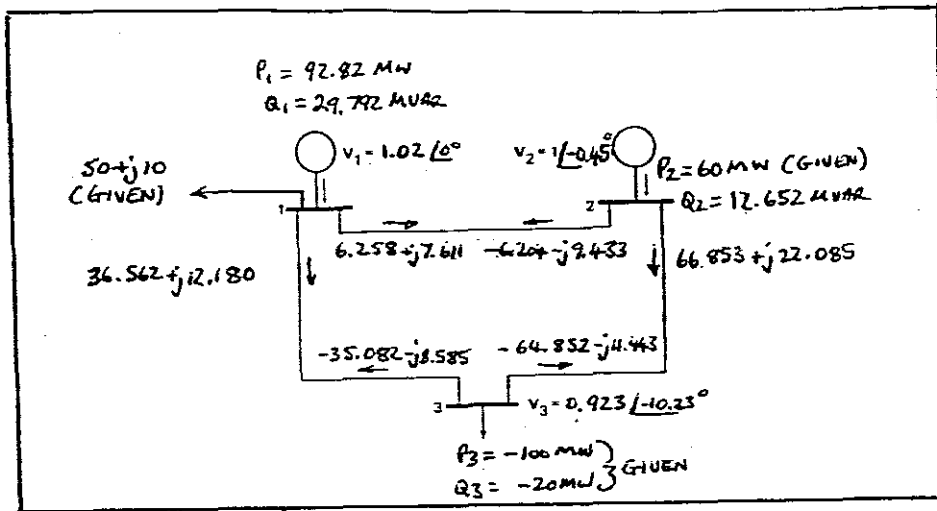 P₁ = 92.82 MW
Q₁ = 29.792 MVAR
50+j10
(GIVEN)
V₁ = 1.02 /0°
V₂ = 1/-0.45°
P₂ = 60 MW (GIVEN)
Q₂ = 12.652 MVAR
1
2
6.258+j7.611
-6.204-j9.433
36.562+j12.180
66.853+j22.085
-35.082-j8.585
-64.852-j11.443
3
V₃ = 0.923 /-10.23°
P₃ = -100 MW
Q₃ = -20MW
} GIVEN